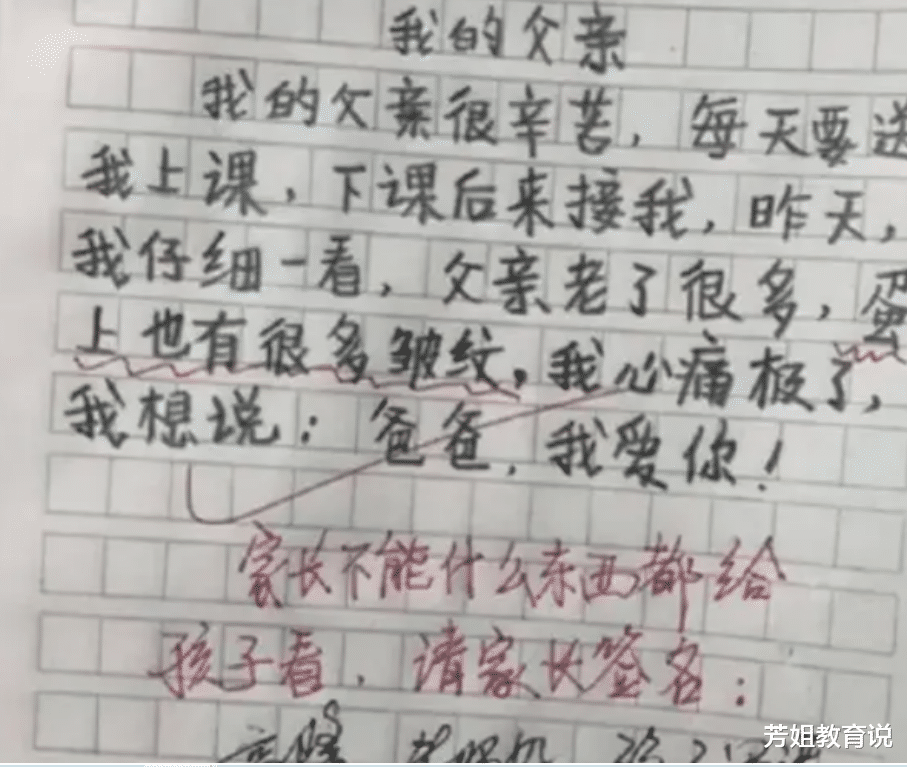 我的父亲
我的父亲很辛苦，每天要送
我上课，下课后来接我，昨天，
我仔细一看，父亲老了很多，蛋
上也有很多皱纹，我心痛极了，
我想说：爸爸，我爱你！
家长不能什么东西都给
孩子看，请家长签名：
芳姐教育说